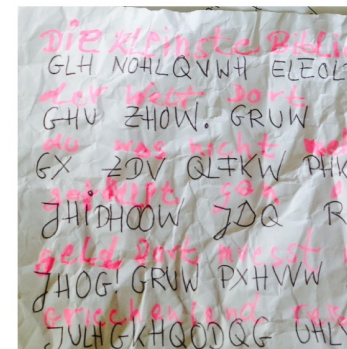 Die kleinste Bibli
GLH NOHLQVWH ELEOL
der Welt Dort
GHU ZHOW. GRUW
du was nicht
GX ZDV QLFKW PHK
gefällt gan
JHIDHOOW JDQ R
geld Dort musst
JHOG! GRUW PXHVVW
Griechenland
JULHGKHQODQG UHL